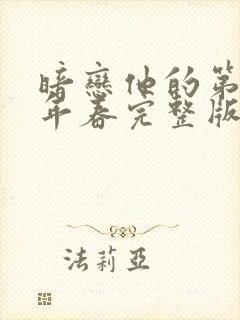 暗戀他的第
年春完整版
法莉亞